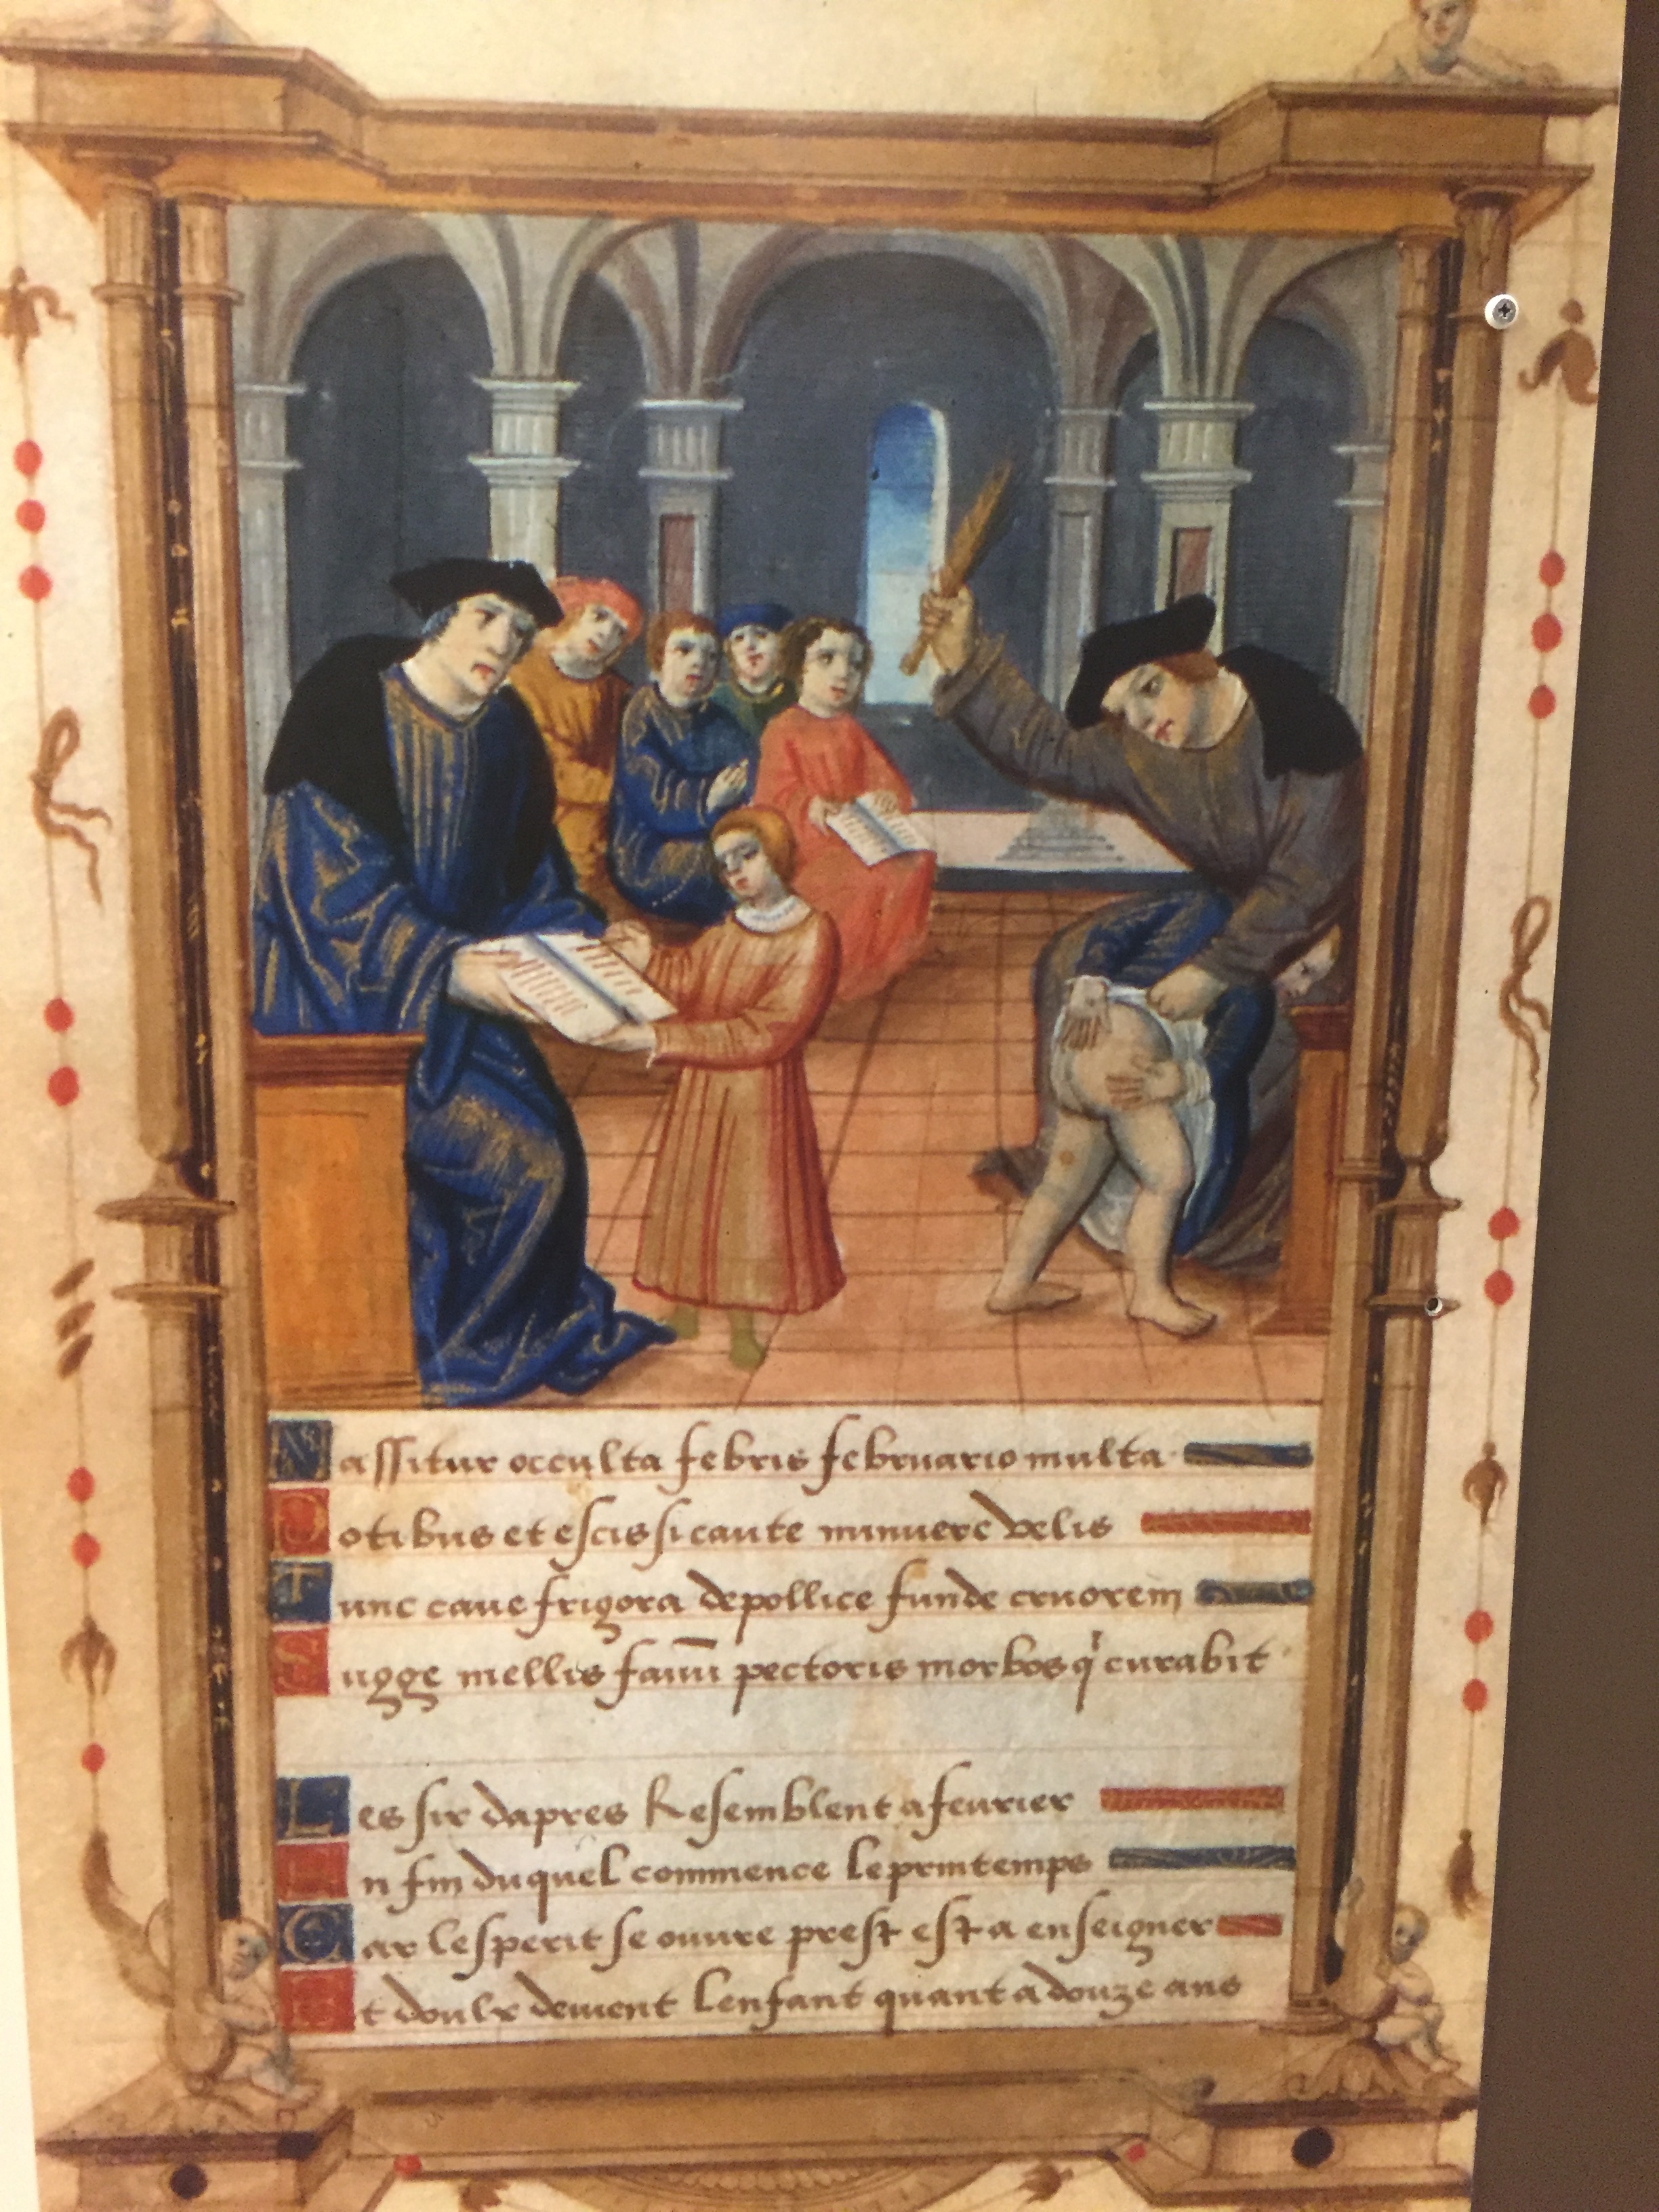 Nassitur occulta febris februario multa
Potibus et escis si caute minuere velis
Tunc cave frigora de pollice funde cruorem
Sugge mellis fauū pectoris morbos q' curabit
Les six dapres Resemblent a feurier
En fin duquel commence le printemps
Car lesperit se ouure prest est a enseigner
Et doulx deuient lenfant quant a douze ans